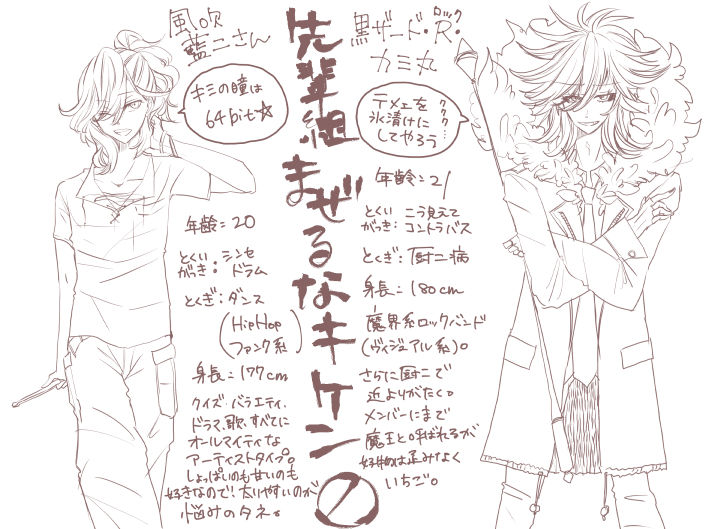 先輩組
まぜるなキケン
風吹
藍二さん
キミの瞳は
64bit☆
年齢=20
とくい
がっき: シンセ
ドラム
とくぎ:ダンス
(HipHop
ファンク系)
身長=177cm
クイズ、バラエティ、
ドラマ、歌、すべてに
オールマイティな
アーティストタイプ。
しょっぱいのも甘いのも
好きなので!太りやすいのが
悩みのタネ。
黒ザード・R・
ロック
カミ丸
ククク…
テメェを
氷漬けに
してやろう
年齢=21
とくい
がっき: こう見えて
コントラバス
とくぎ:厨二病
身長=180cm
魔界系ロックバンド
(ヴィジュアル系)。
さらに厨二で
近よりがたく。
メンバーにまで
魔王と呼ばれるが
好物は正みなく
いちご。